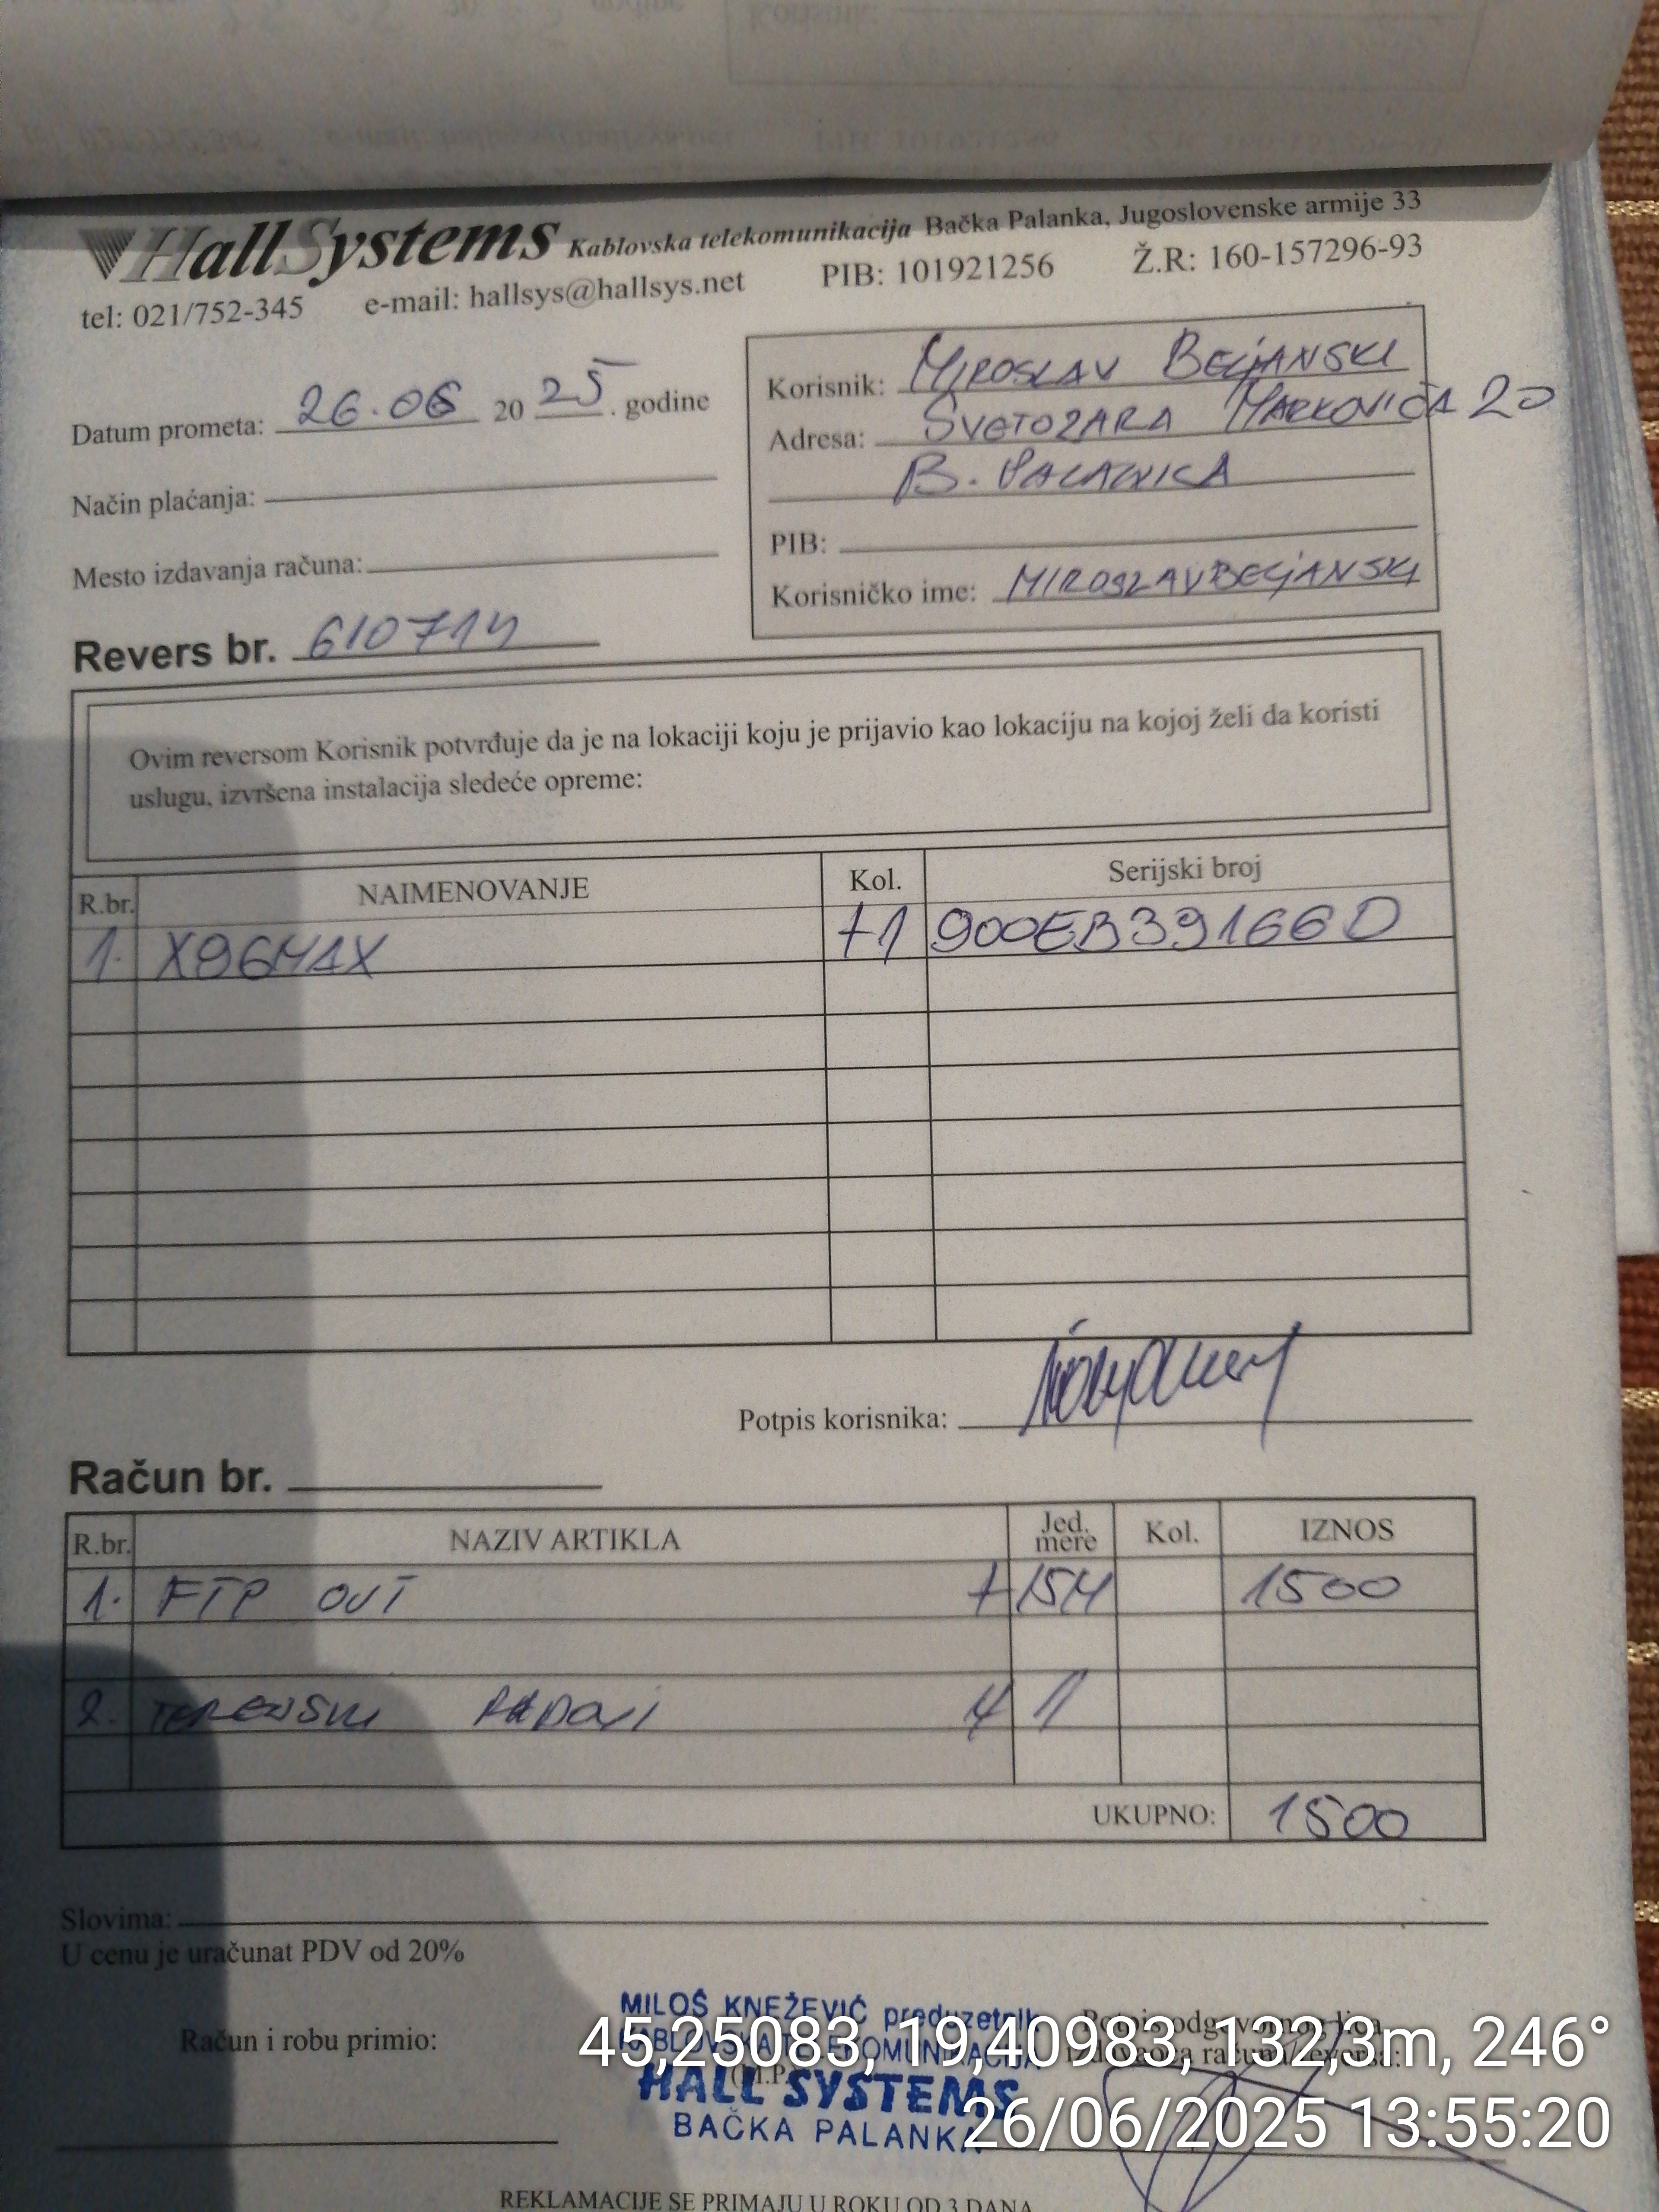 HallSystems Kablovska telekomunikacija Bačka Palanka, Jugoslovenske armije 33
tel: 021/752-345 e-mail: hallsys@hallsys.net PIB: 101921256 Ž.R: 160-157296-93
Datum prometa: 26.06 20 25 . godine
Način plaćanja:
Mesto izdavanja računa:
Korisnik: MIROSLAV BELJANSKI
Adresa: SVETOZARA MARKOVIĆA 20
B. PALANKA
PIB:
Korisničko ime: MIROSLAVBELJANSKI
Revers br. 610714
Ovim reversom Korisnik potvrđuje da je na lokaciji koju je prijavio kao lokaciju na kojoj želi da koristi
uslugu, izvršena instalacija sledeće opreme:
R.br. NAIMENOVANJE Kol. Serijski broj
1. X96MAX +1 900EB39166D
Potpis korisnika:
Račun br.
R.br. NAZIV ARTIKLA Jed. mere Kol. IZNOS
1. FTP OUT + 15M 1500
2. TERENSKI RADOVI 1
UKUPNO: 1500
Slovima:
U cenu je uračunat PDV od 20%
Račun i robu primio:
MILOŠ KNEŽEVIĆ preduzetnik
KABLOVSKA TELEKOMUNIKACIJA
(M.P.)
HALL SYSTEMS
BAČKA PALANKA
Potpis odgovornog lica
izdavaoca računa/reversa:
45,25083, 19,40983, 132,3m, 246°
26/06/2025 13:55:20
REKLAMACIJE SE PRIMAJU U ROKU OD 3 DANA